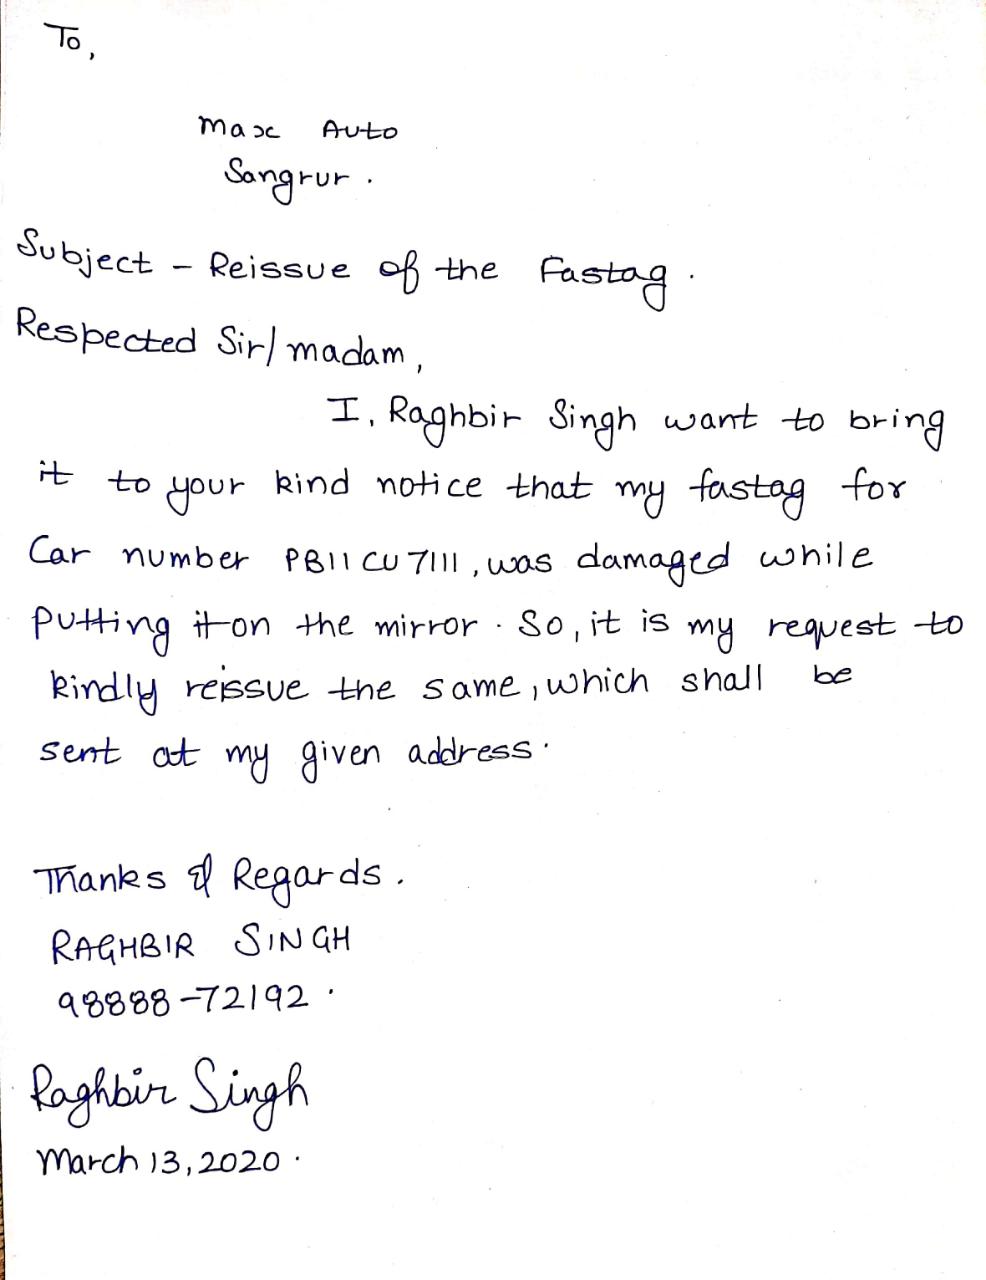 To,
Max Auto
Sangrur.
Subject - Reissue of the Fastag.
Respected Sir/madam,
I, Raghbir Singh want to bring
it to your kind notice that my fastag for
Car number PB11 CU 7111, was damaged while
putting it on the mirror. So, it is my request to
kindly reissue the same, which shall be
sent at my given address.
Thanks & Regards.
RAGHBIR SINGH
98888-72192.
Raghbir Singh
March 13, 2020.